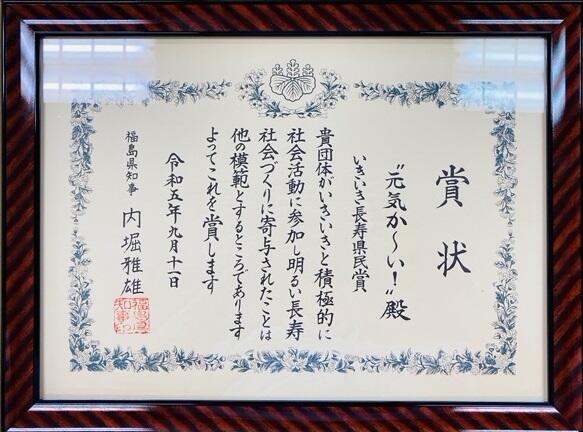 賞状
〝元気か〜い!〟殿
いきいき長寿県民賞
貴団体がいきいきと積極的に
社会活動に参加し明るい長寿
社会づくりに寄与されたことは
他の模範とするところであります
よってこれを賞します
令和五年九月十一日
福島県知事 内堀雅雄
福島県
知事印